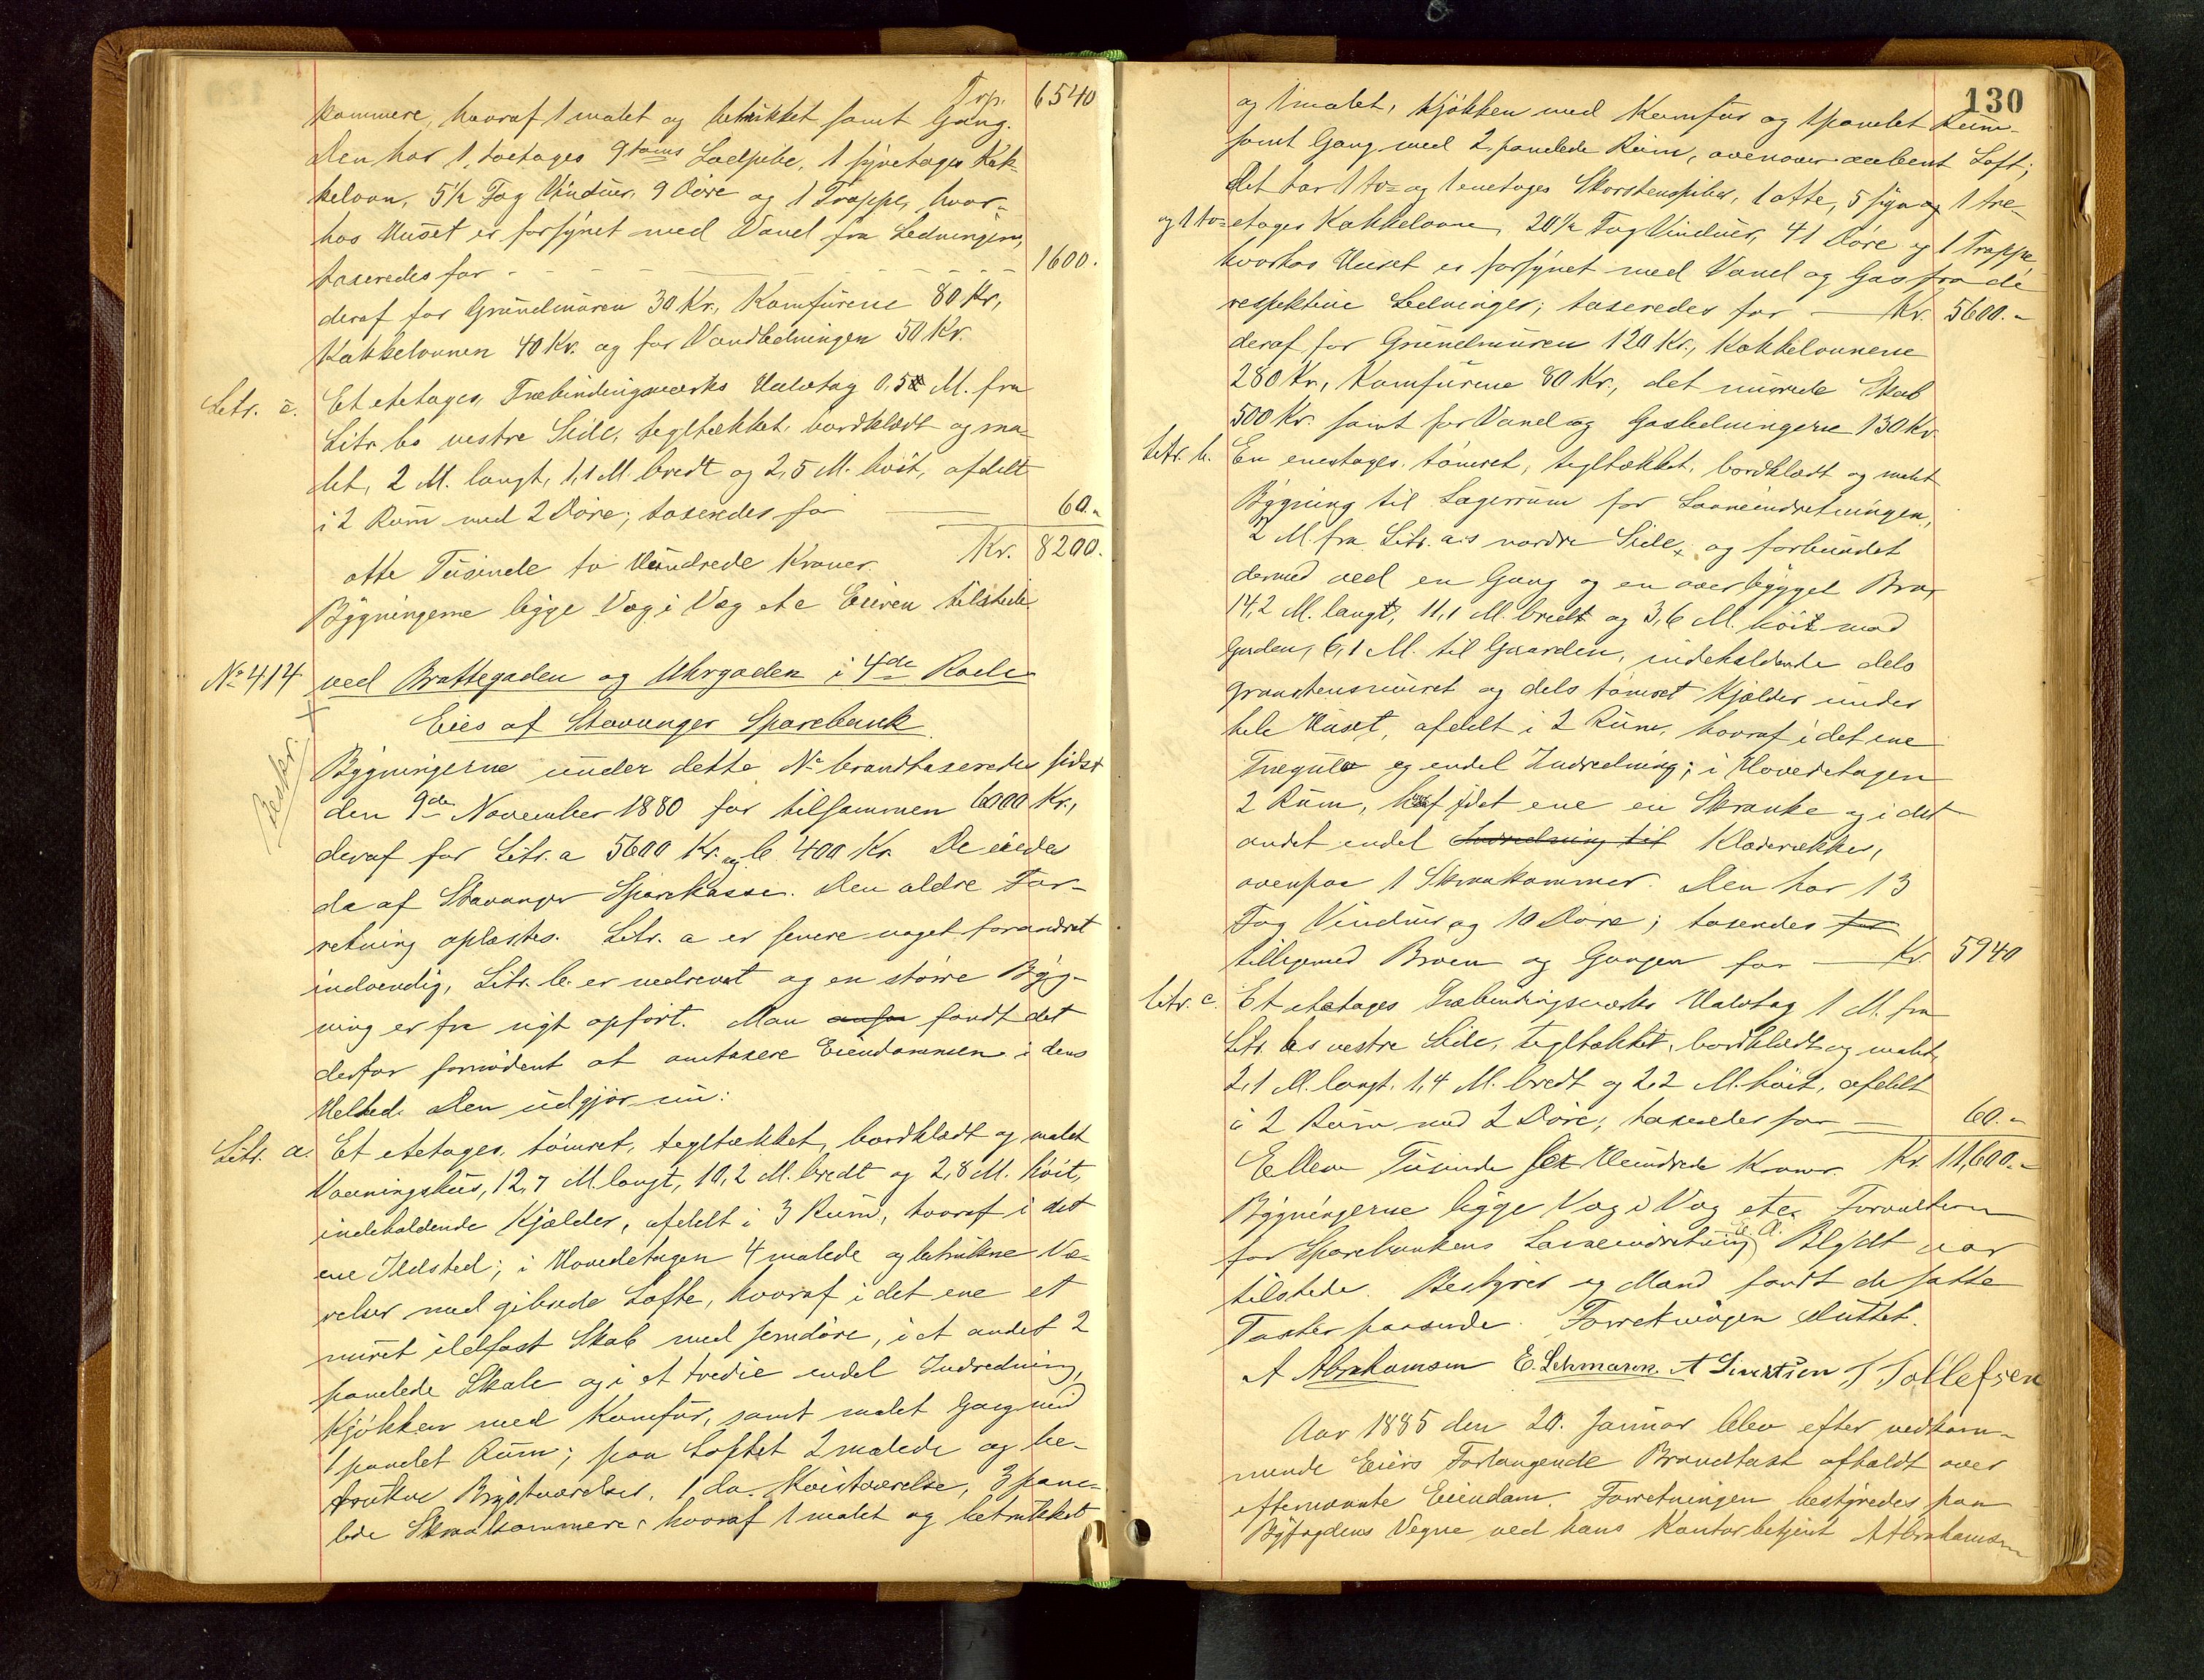 Trp. 6540
kammere, hvoraf 1 malet og betrukket samt Gang.
Den har 1, toetages 9 toms Loedpibe, 1 syvetages Kak-
kelovn, 5½ Fag Vinduer, 9 Døre og 1 Trappe, hvor-
hos Huset er forsynet med Vand fra Ledningen,
taxeredes for - - - - - 1600.
deraf for Grundmuren 30 Kr., Komfurene 80 Kr.,
Kakkelovnen 40 Kr. og for Vandledningen 50 Kr.
Litr. c. Et etetages, Træbindingsværks Halvtag 0,5 M. fra
Litr. bs vestre Side, tegltækket, bordklædt og ma-
let, 2 M. langt, 1,1 M. bredt og 2,5 M. høit, afdelt
i 2 Rum med 2 Døre; taxeredes for 60.-
otte Tusinde to Hundrede Kroner. Kr. 8200.
Bygningerne ligge Væg i Væg etc Eieren tilstede.
No 414 ved Brattegaden og Uhrgaden i 4de Rode
Eies af Stavanger Sparebank
Bygningerne under dette No brandtaxeredes sidst
den 9de November 1880 for tilsammen 6000 Kr.,
deraf for Litr. a 5600 Kr. og b 400 Kr. De eiedes
da af Stavanger Sparekasse. Den ældre For-
retning oplæstes. Litr. a er senere noget forandret
indvendig, Litr. b. er nedrevet og en større Byg-
ning er fra nyt opført. Man fandt det
derfor fornødent at omtaxere Eiendommen i dens
Helhed. Den udgjør nu:
Litr. a. Et etetages, tømret, tegltækket, bordklædt og malet
Vaaningshus, 12,7 M. langt, 10,2 M. bredt og 2,8 M. høit,
indeholdende Kjælder, afdelt i 3 Rum, hvoraf i det
ene Ildsted; i Hovedetagen 4 malede og betrukne Væ-
relser med gibsede Lofte, hvoraf i det ene et
muret ildfast Skab med Jerndøre, i et andet 2
panelede Skabe og i et tredie endel Indredning,
Kjøkken med Komfur, samt malet Gang med
1 panelet Rum; paa Loftet 2 malede og be-
trukne Brystværelser, 1 do. Kvistværelse, 3 pane-
lede Skraakammere, hvoraf 1 malet og betrukket
130
og 1 malet, Kjøkken med Komfur og 1 panelet Rum
samt Gang med 2 panelede Rum, ovenover aabent Loft;
det har 1 to- og 1 enetages Skorstenspiber, 1 otte, 5 syv og 1 tre-
og 1 to-etages Kakkelovne, 20½ Fag Vinduer, 41 Døre og 1 Trappe
hvorhos Huset er forsynet med Vand og Gas fra de
respektive Ledninger; taxeredes for — Kr. 5600.-
deraf for Grundmuren 120 Kr., Kakkelovnene
280 Kr., Komfurene 80 Kr., det murede Skab
500 Kr. samt for Vand og Gasledningerne 130 Kr.
Litr. b. En enetages, tømret, tegltækket, bordklædt og malet
Bygning til Lagerrum for Laaneindretningen,
2 M. fra Litr. a:s nordre Side, og forbundet
dermed ved en Gang og en overbygget Bro,
14,2 M. langt, 11,1 M. bredt og 3,6 M. høit mod
Gaden, 6,1 M. til Gaarden, indeholdende dels
graastensmuret og dels tømret Kjælder under
hele Huset, afdelt i 2 Rum, hvoraf i det ene
Trægulv og endel Indredning; i Hovedetagen
2 Rum, hvoraf i det ene en Skranke og i det
andet endel Indredning til Klæderækker,
ovenpaa 1 Skraakammer. Den har 13
Fag Vinduer og 10 Døre; taxeredes for
tilligemed Broen og Gangen for — Kr. 5940
Litr. c. Et etetages Træbindingsværks Halvtag 1 M. fra
Litr. bs vestre Side, tegltækket, bordklædt og malet,
2,1 M. langt, 1,4 M. bredt og 2,2 M. høit, afdelt
i 2 Rum med 2 Døre; taxeredes for — 60.-
Elleve Tusinde sex Hundrede Kroner. Kr. 11,600.-
Bygningerne ligge Væg i Væg etc. Forvalteren
for Sparebankens Laaneindretning A. Blydt var
tilstede. Bestyrer og Mænd fandt de satte
Taxter passende. Forretningen sluttet.
A Abrahamsen E. Lehmann. A Sivertsen T Tollefsen
Aar 1885 den 20. Januar blev efter vedkom-
mende Eiers Forlangende Brandtaxt afholdt over
efternævnte Eiendom. Forretningen bestyredes paa
Byfogdens Vegne ved hans Kontorbetjent A Abrahamsen